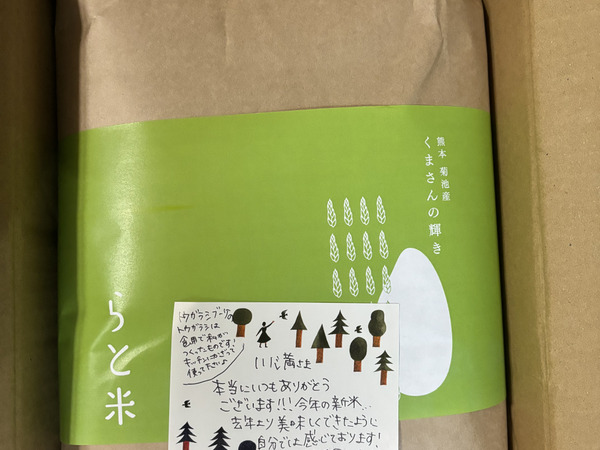 熊本 菊池産
くまさんの輝き
らと米
トウガラシブーケの
トウガラシは
食用で私が
つくったものです!
キッチンにかざって
使って下さいね
満さま
本当にいつもありがとう
ございます!!!今年の新米...
去年より美味しくできたように
自分では感じております!